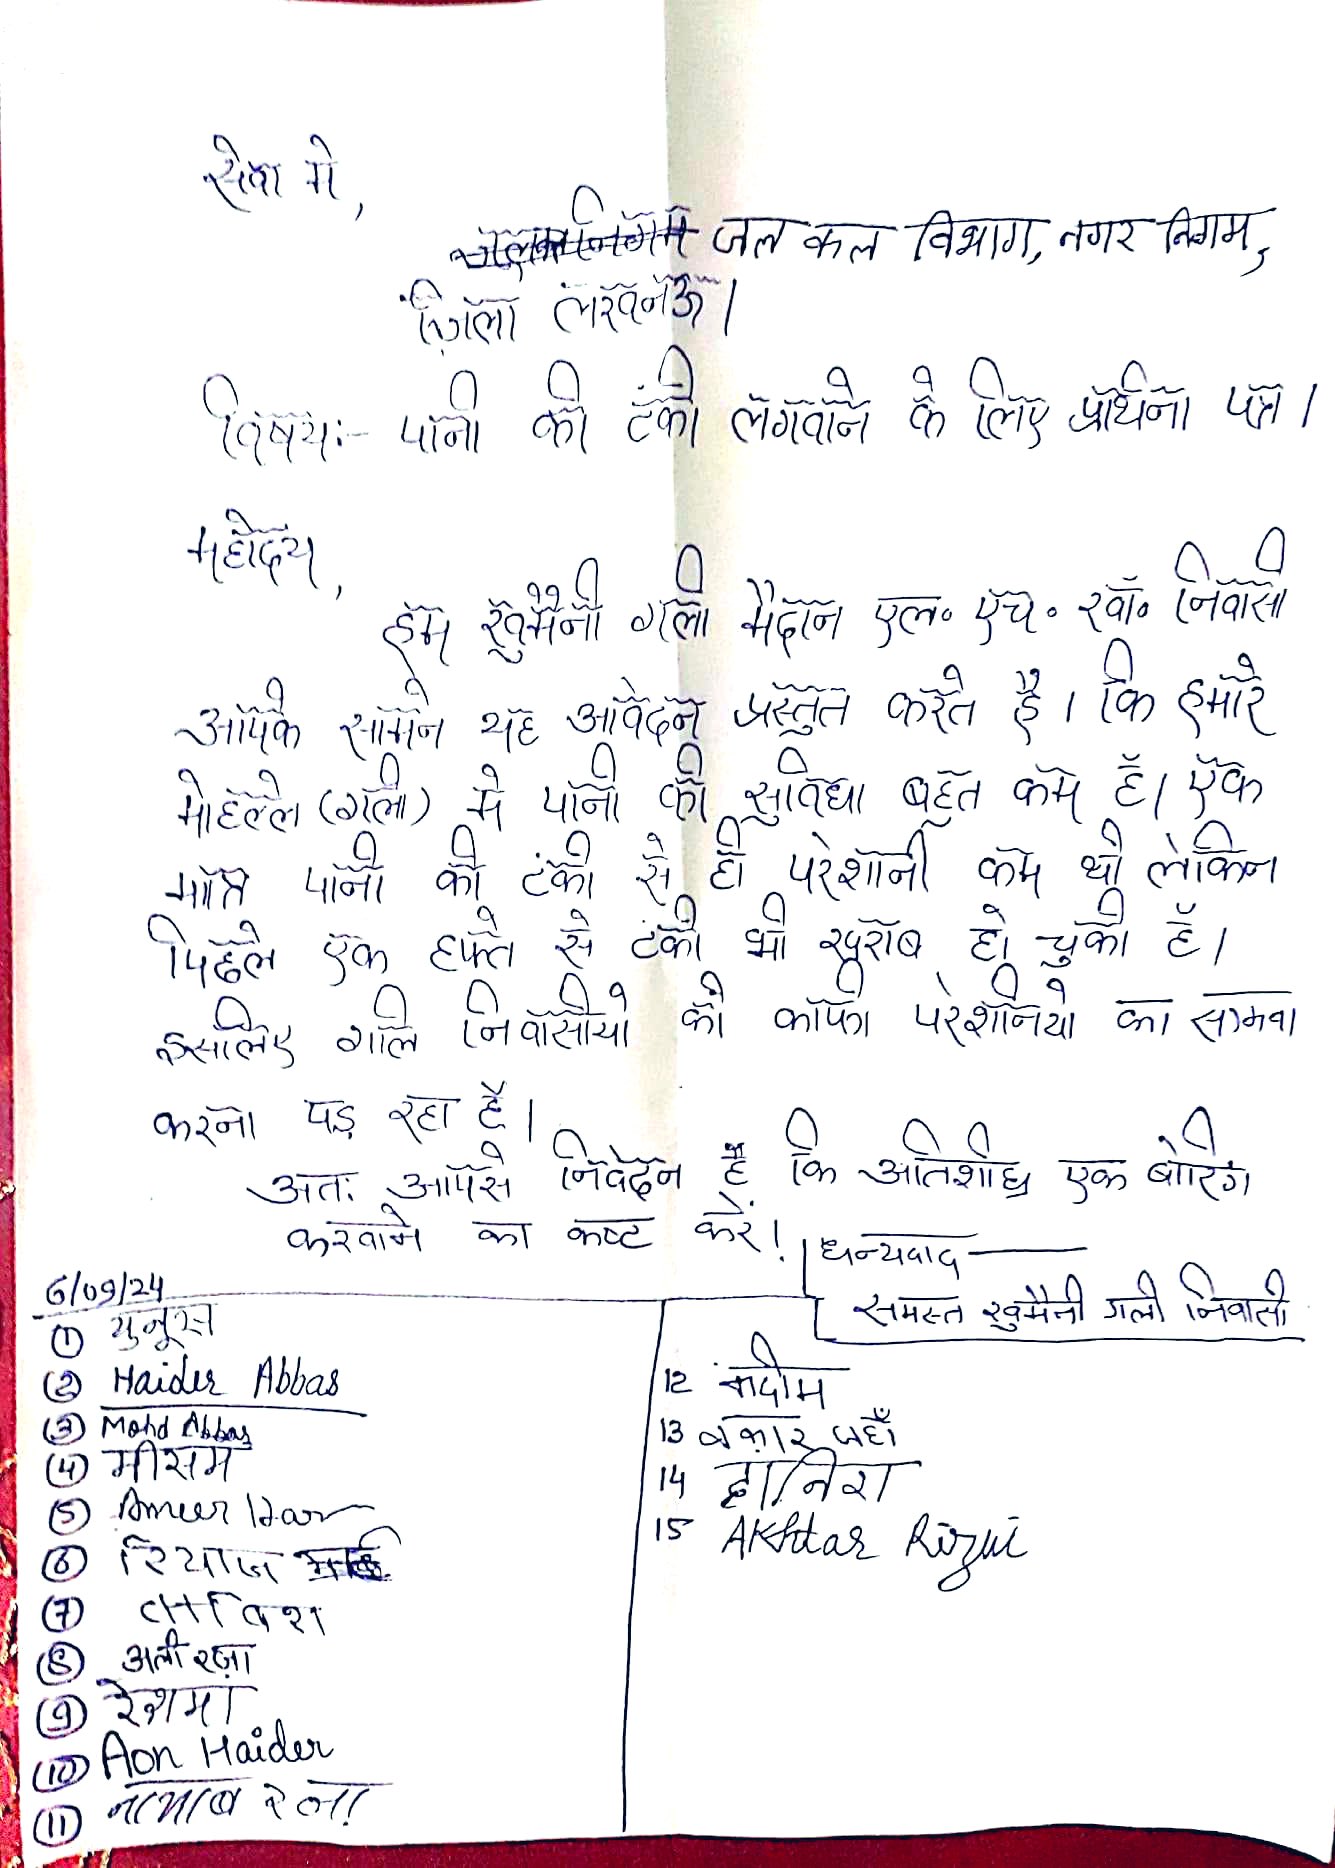 सेवा में,
जल कल विभाग, नगर निगम,
ज़िला लखनऊ।
विषय:- पानी की टंकी लगवाने के लिए प्रार्थना पत्र।
महोदय,
हम ख़ुमैनी गली मैदान एल॰ एच॰ खाँ॰ निवासी
आपके सामने यह आवेदन प्रस्तुत करते है। कि हमारे
मोहल्ले (गली) मे पानी की सुविधा बहुत कम है। एक
मात्र पानी की टंकी से ही परेशानी कम थी लेकिन
पिछले एक हफ्ते से टंकी भी ख़राब हो चुकी है।
इसलिए गलि निवासीयो को काफी परेशनियो का सामना
करना पड़ रहा है।
अतः आपसे निवेदन है कि अतिशीघ्र एक बोरिंग
करवाने का कष्ट करें!
धन्यवाद
समस्त ख़ुमैनी गली निवासी
6/09/24
① युनूस
② Haider Abbas
③ Mohd Abbas
④ मीसम
⑤ Ameer
⑥ रियाज
⑦
⑧ अली रज़ा
⑨ रेशमा
⑩ Aon Haider
⑪
12 नदीम
13 वक़ार
14 दानिश
15 Akhtar Rizvi